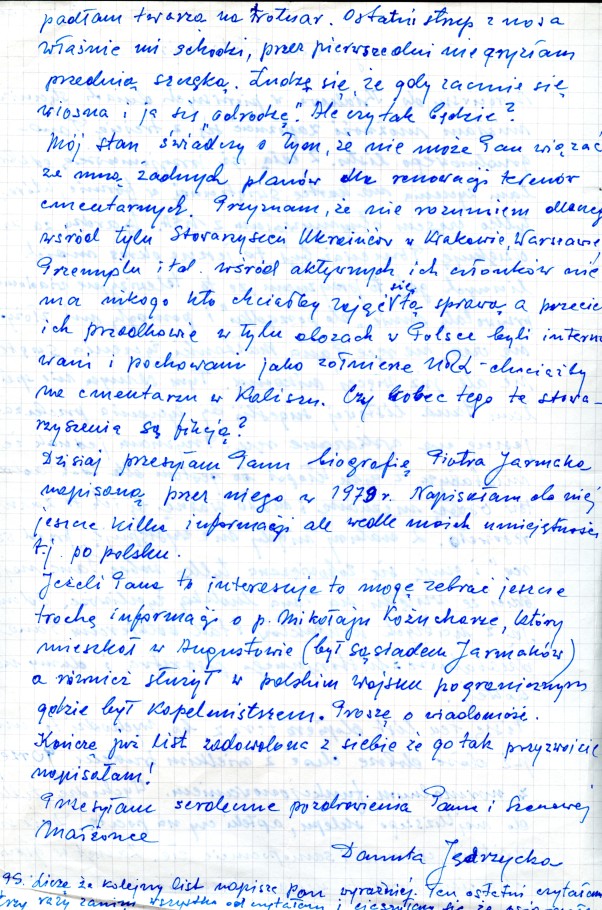 padłam twarzą na trotuar. Ostatni strup z nosa
właśnie mi schodzi, przez pierwsze dni nie gryzłam
przednią szczęką. Łudzę się, że gdy zacznie się
wiosna i ja się „odrodzę". Ale czy tak będzie?
Mój stan świadczy o tym, że nie może Pan wiązać
ze mną żadnych planów dla renowacji terenów
cmentarnych. Przyznam, że nie rozumiem dlaczego
wśród tylu Stowarzyszeń Ukraińców w Krakowie, Warszawie
Przemyślu itd. wśród aktywnych ich członków nie
ma nikogo kto chciałby zająć się tą sprawą a przecie
ich przodkowie w tylu obozach w Polsce byli interno
wani i pochowani jako żołnierze URL - chociażby
na cmentarzu w Kaliszu. Czy wobec tego te stowa-
rzyszenia są fikcją?
Dzisiaj przesyłam Panu biografię Piotra Jarmaka
napisaną przez niego w 1979 r. Napisałam do niej
jeszcze kilka informacji ale wedle moich umiejętności
t.j. po polsku.
Jeżeli Pana to interesuje to mogę zebrać jeszcze
trochę informacji o p. Mikołaju Kożucharze, który
mieszkał w Augustowie (był sąsiadem Jarmaków)
a również służył w polskim wojsku pogranicznym
gdzie był kapelmistrzem. Proszę o wiadomość.
Kończę już list zadowolona z siebie że go tak przyzwoicie
napisałam!
Przesyłam serdeczne pozdrowienia Panu i Szanownej
Małżonce
Danuta Jędrzycka
PS. Liczę że kolejny list napisze Pan wyraźniej. Ten ostatni czytałam
trzy razy zanim wszystko odczytałam i cieszyłam się że